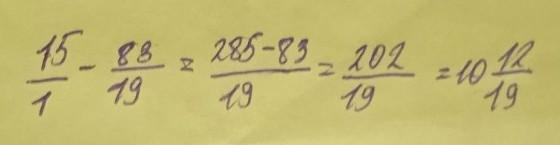 15/1 - 83/19 = 285-83/19 = 202/19 = 10 12/19